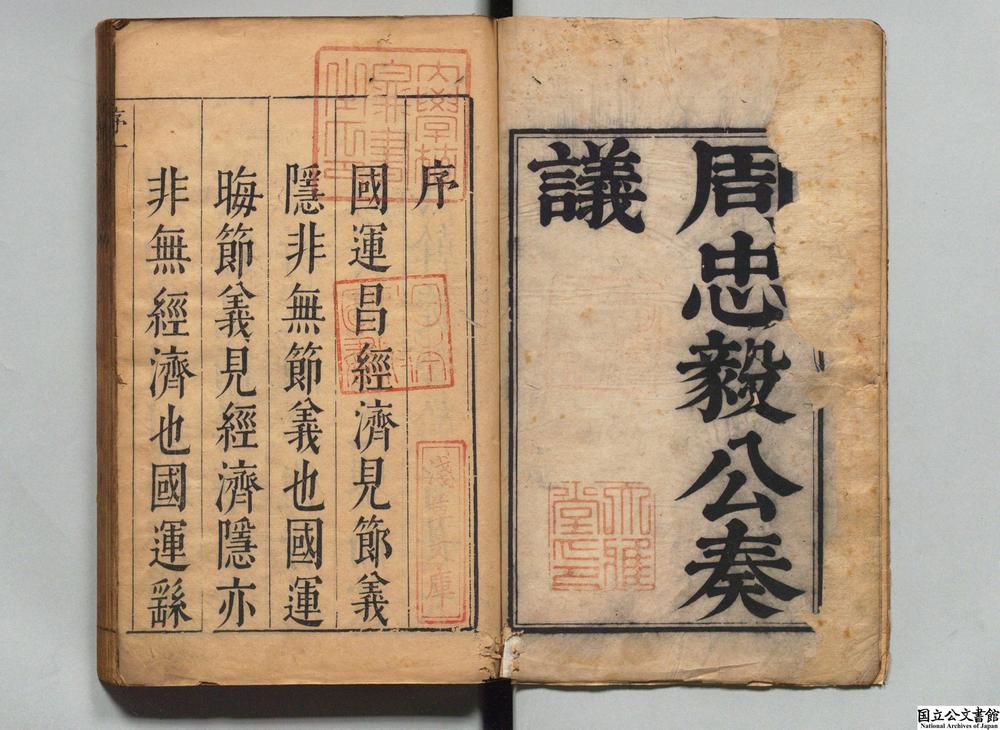 周忠毅公奏
議
大雅
堂印
大學校
圖書
之印
淺草文庫
序
國運昌經濟見節義
隱非無節義也國運
晦節義見經濟隱亦
非無經濟也國運繇
序一
国立公文書館
National Archives of Japan